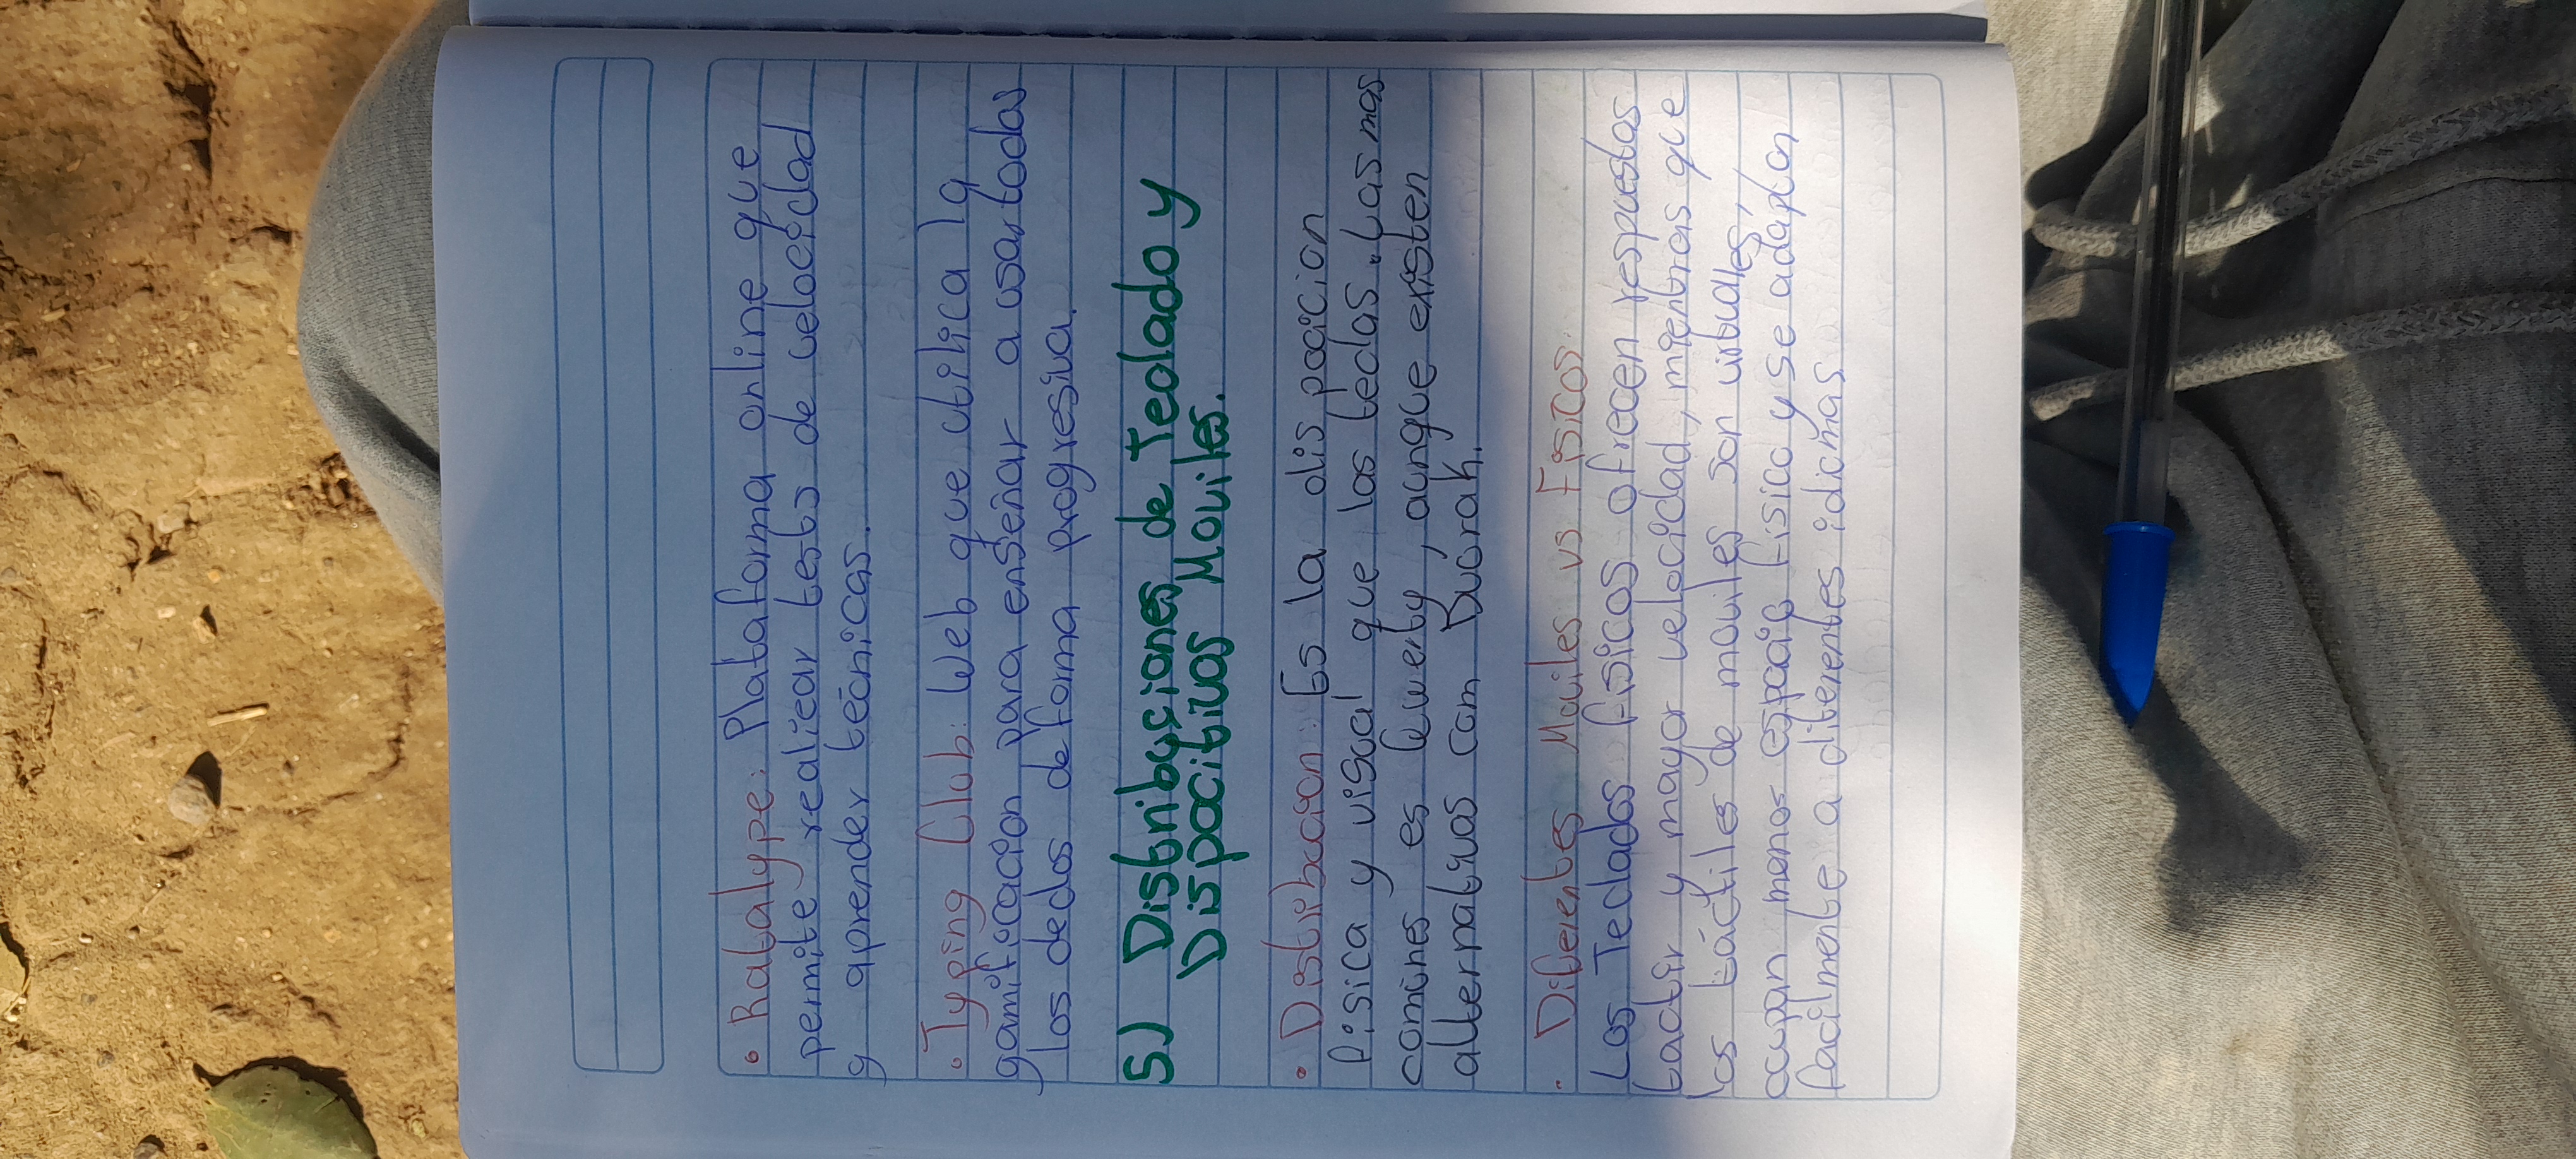 • Ratatype: Plataforma online que
permite realizar tests de velocidad
y aprender técnicas.
• Typing Club: Web que utilica la
gamificacion para enseñar a usar todos
los dedos de forma progresiva.
5) Distribuciones de Teclado y
Dispocitivos Moviles.
• Distribucion: Es la dis pocicion
fisica y visual que las teclas. Las mas
comúnes es Qwerty, aunque existen
alternativas com Dvorak.
• Diferentes Moviles vs Fisicos.
Los Teclados fisicos ofrecen respuestas
tactir y mayor velocidad, mientras que
los táctiles de moviles son virtuales,
ocupan menos espacio fisico y se adaptan
facilmente a diferentes idiomas.